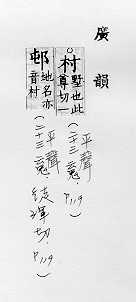 廣韻
村墅也此尊切一
平聲
二十三蒐.P.119
邨地名亦音村
(二十三蒐.徒渾切.P.119
平聲